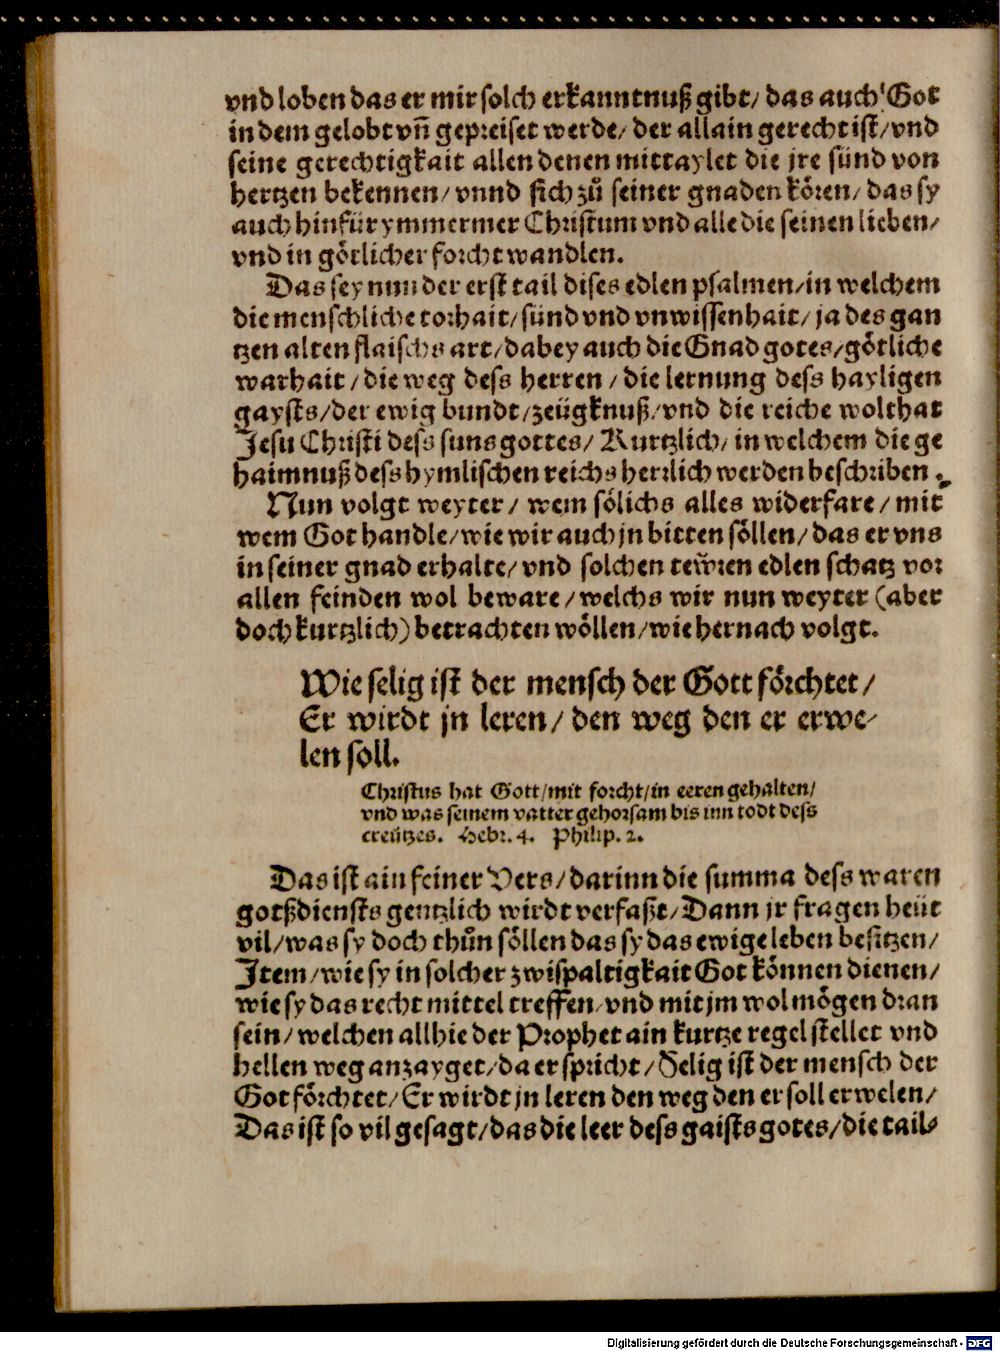 vnd loben das er mir solch erkanntnuß gibt/ das auch Got
in dem gelobt vn̄ gepreiset werde/ der allain gerecht ist/ vnd
seine gerechtigkait allen denen mittaylet die jre sünd von
hertzen bekennen/ vnnd sich zů seiner gnaden kören/ das sy
auch hinfür ymmermer Christum vnd alle die seinen lieben/
vnd in götlicher forcht wandlen.
Das sey nun der erst tail dises edlen psalmen/ in welchem
die menschliche torhait/ sünd vnd vnwissenhait/ ja des gan
tzen alten flaischs art/ dabey auch die Gnad gotes/ götliche
warhait/ die weg dess herren/ die lernung dess hayligen
gaysts/ der ewig bundt/ zeügknuß/ vnd die reiche wolthat
Jesu Christi dess suns gottes/ Kurtzlich/ in welchem die ge
haimnuß dess hymlischen reichs herrlich werden beschriben.
Nun volgt weyter/ wem sölichs alles widerfare/ mit
wem Got handle/ wie wir auch jn bitten söllen/ das er vns
in seiner gnad erhalte/ vnd solchen teẅren edlen schatz vor
allen feinden wol beware/ welchs wir nun weyter (aber
doch kurtzlich) betrachten wöllen/ wie hernach volgt.
Wie selig ist der mensch der Gott förchtet/
Er wirdt jn leren/ den weg den er erwe-
len soll.
Christus hat Gott/ mit forcht/ in eeren gehalten/
vnd was seinem vatter gehorsam bis inn todt dess
creützes. Hebr. 4. Philip. 2.
Das ist ain feiner Vers/ darinn die summa dess waren
gotßdiensts gentzlich wirdt verfaßt/ Dann jr fragen heüt
vil/ was sy doch thůn söllen das sy das ewige leben besitzen/
Item/ wie sy in solcher zwispaltigkait Got können dienen/
wie sy das recht mittel treffen/ vnd mit jm wol mögen dran
sein/ welchen allhie der Prophet ain kurtze regel stellet vnd
hellen weg anzayget/ da er spricht/ Selig ist der mensch der
Got förchtet/ Er wirdt jn leren den weg den er soll erwelen/
Das ist so vil gesagt/ das die leer dess gaists gotes/ die tail-
Digitalisierung gefördert durch die Deutsche Forschungsgemeinschaft - DFG